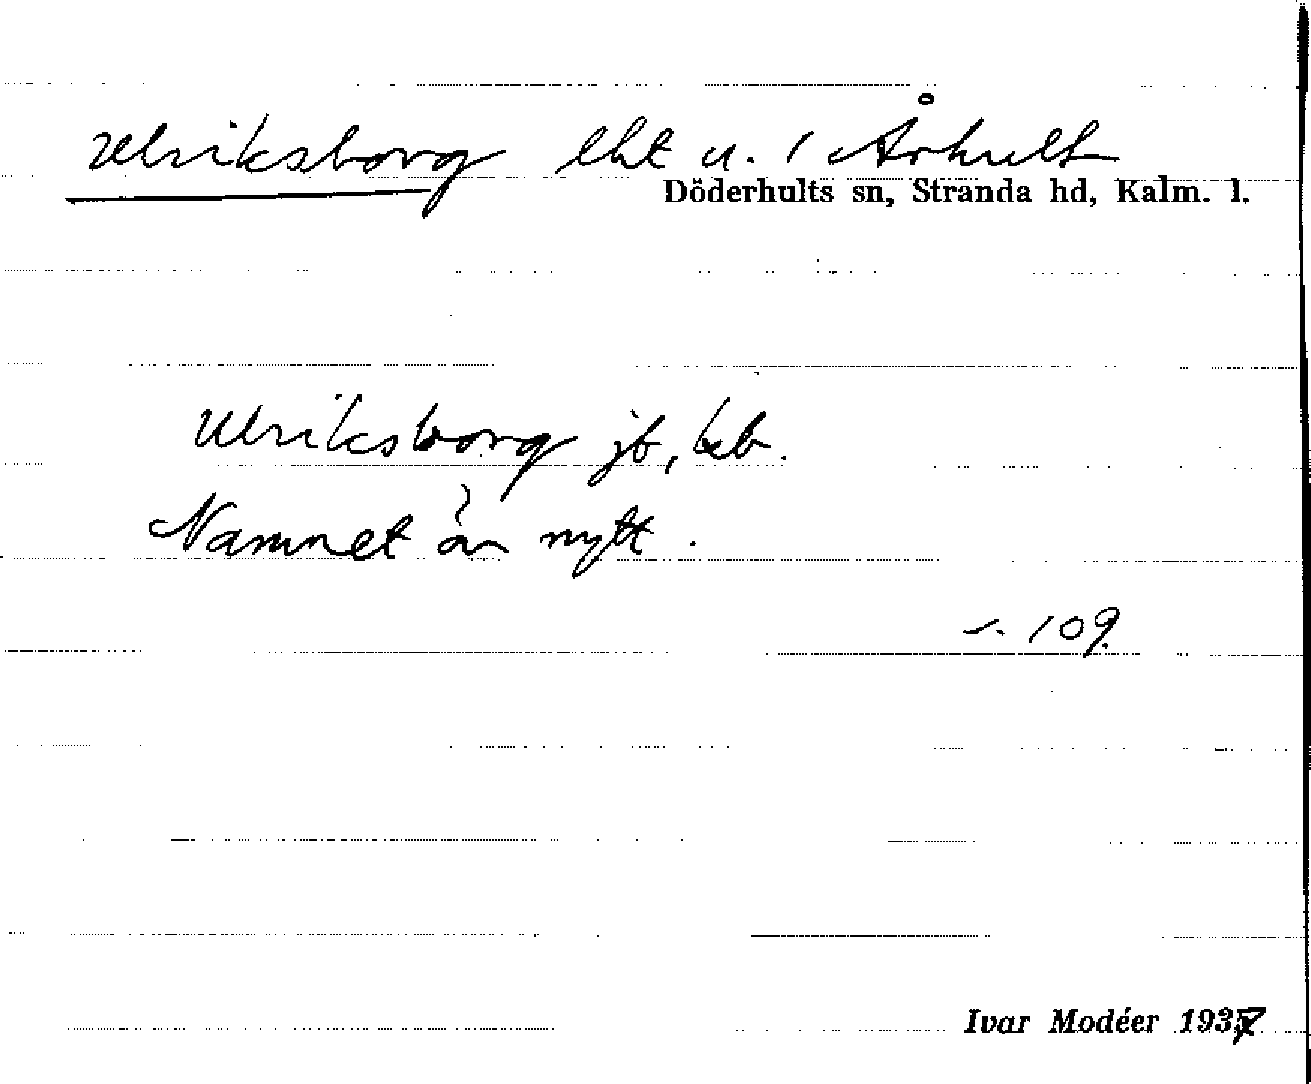 Ulriksborg lht u. 1 Århult
Döderhults sn, Stranda hd, Kalm. l.
Ulriksborg jb, beb.
Namnet är nytt.
s. 109.
Ivar Modéer 1937